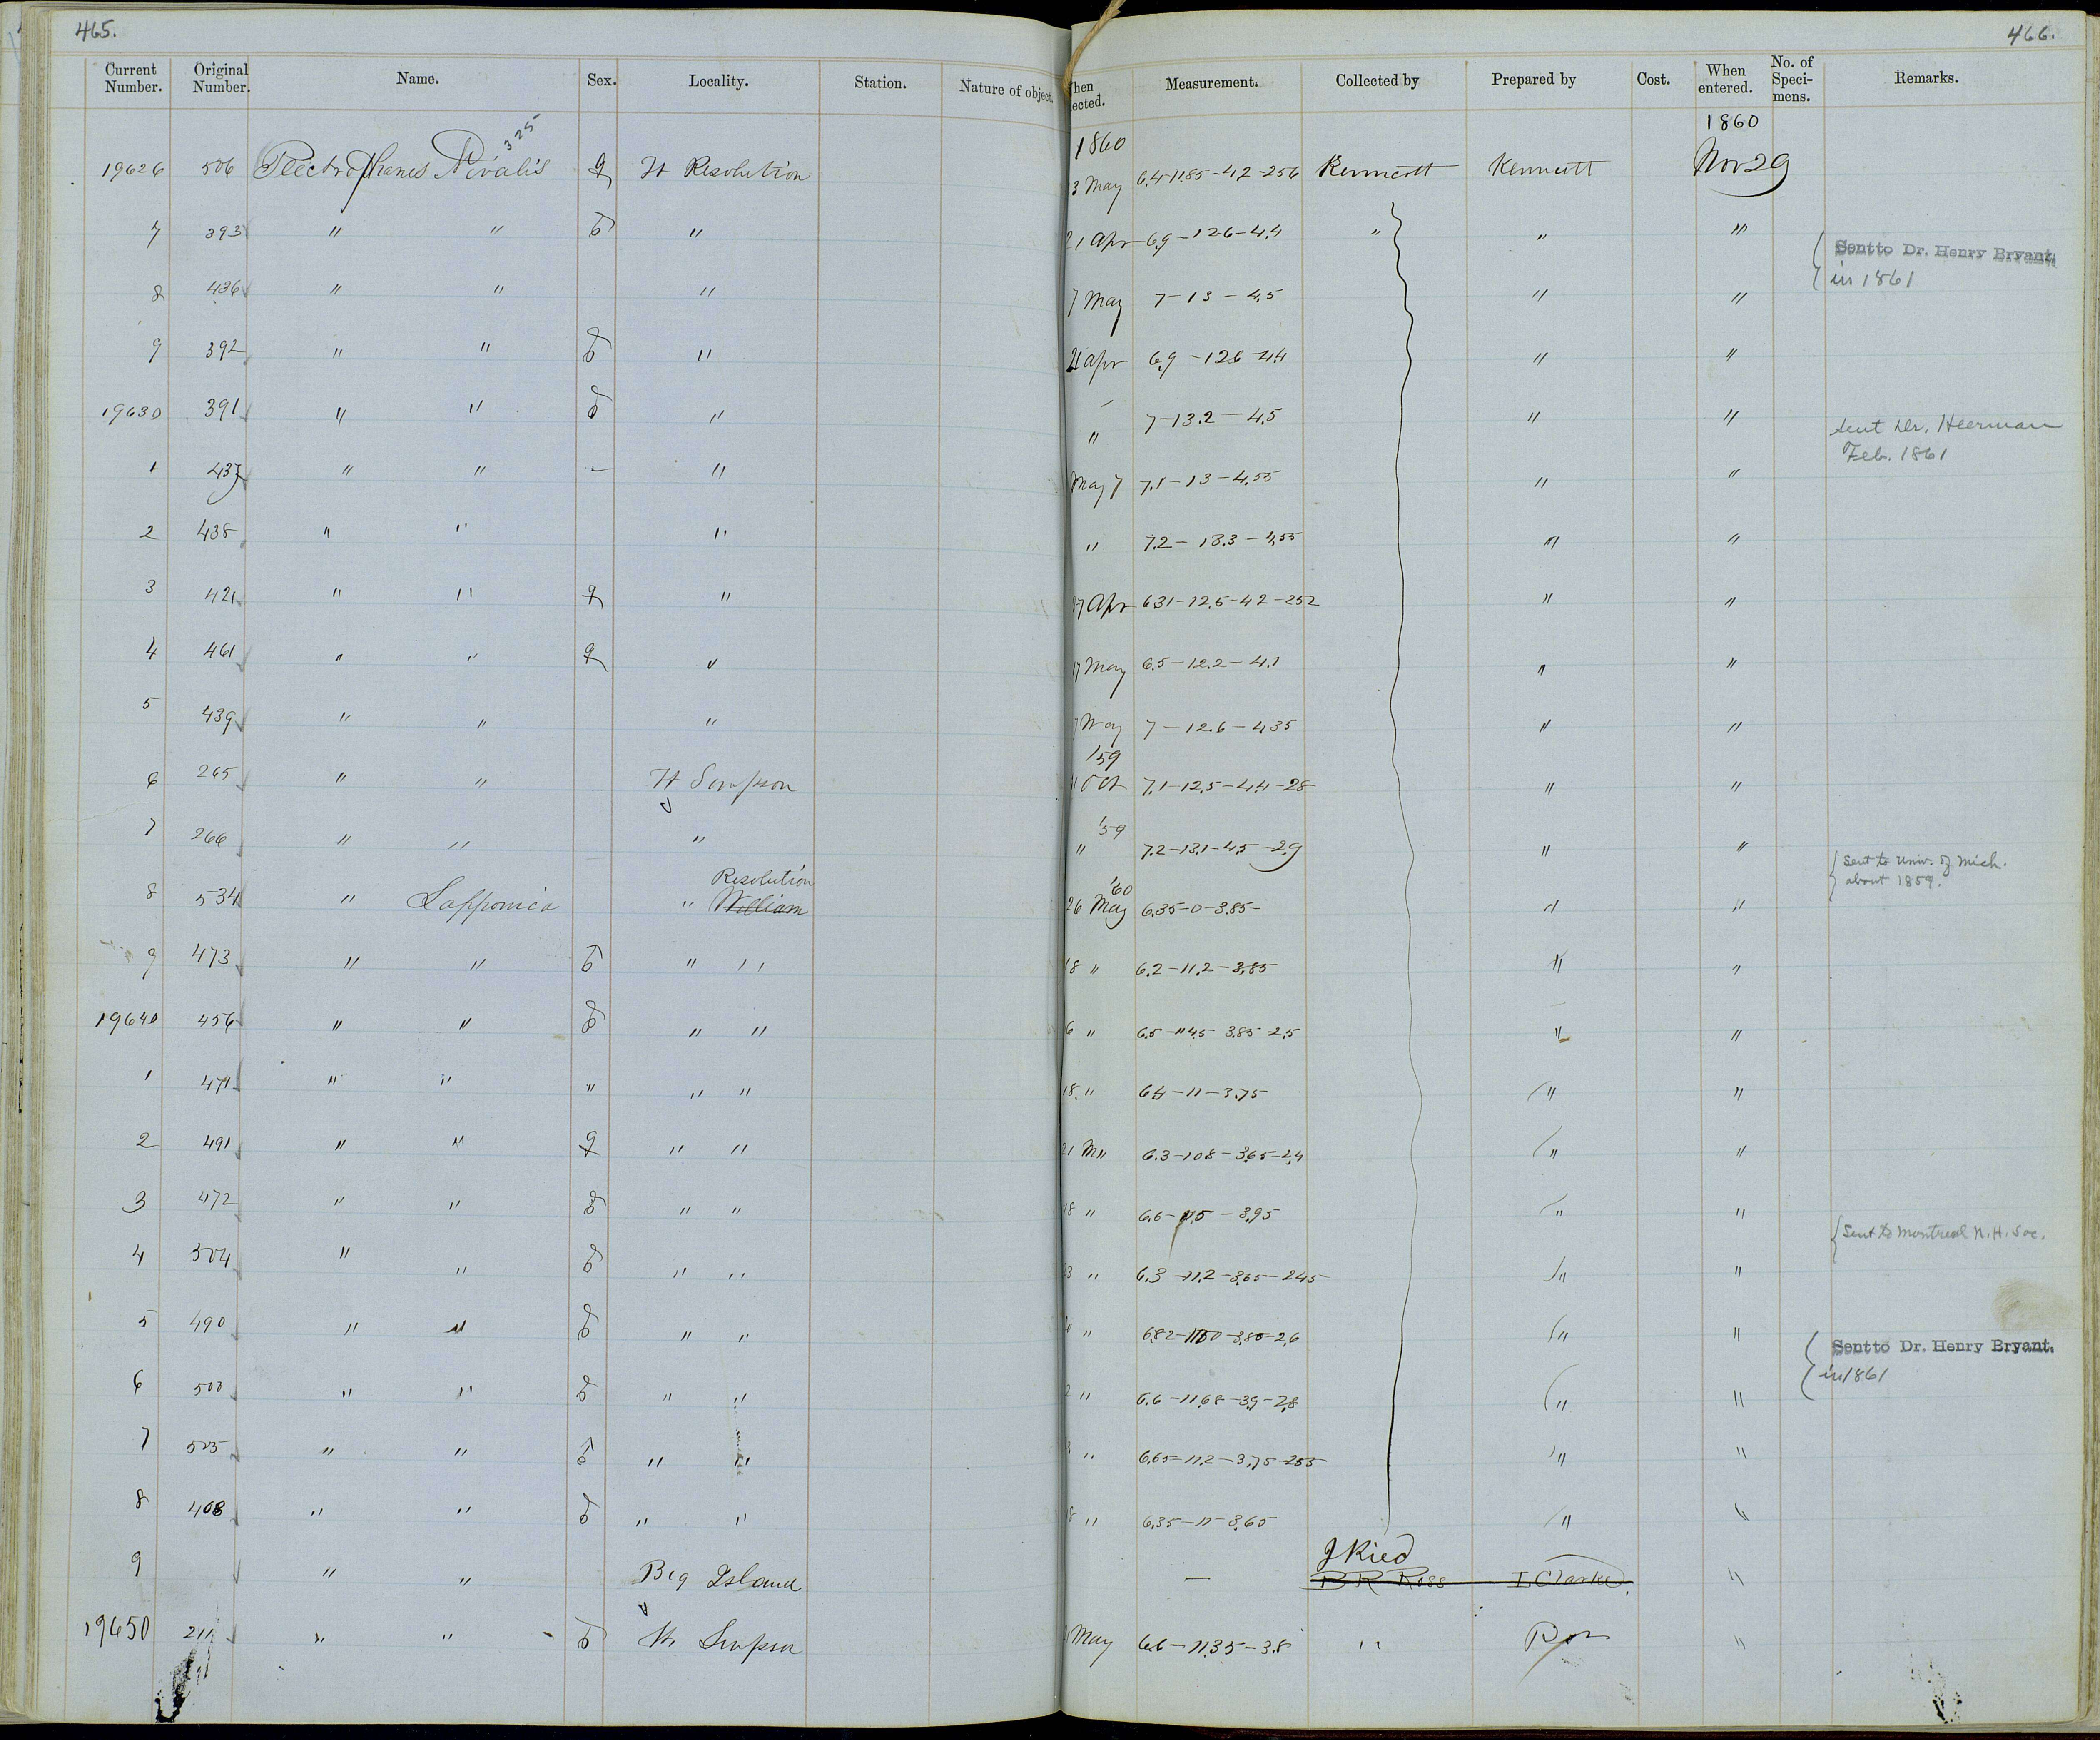 465.
466.
Current Number. Original Number. Name. Sex. Locality. Station. Nature of object. When ected. Measurement. Collected by Prepared by Cost. When entered. No. of Speci-mens. Remarks.
325
1860 1860
19626 506 Plectrophanes Nivalis ♀ Ft Resolution 3 May 6.4-11.85-4.2-256 Kennicott Kennicott Nov 29
7 393 " " ♂ " 21 Apr 6.9-126-4.4 " " " Sent to Dr. Henry Bryant.
in 1861
8 436 " " " 7 May 7-13-4.5 " "
9 392 " " ♂ " 21 Apr 6.9-126-44 " "
19630 391 " " ♂ " " 7-13.2-4.5 " " Sent Dr. Heerman
Feb. 1861
1 437 " " - " May 7 7.1-13-4.55 " "
2 438 " " " " 7.2-13.3-4.55 " "
3 421 " " ♀ " 27 Apr 631-12.5-42-252 " "
4 461 " " ♀ " 17 May 6.5-12.2-4.1 " "
5 439 " " " 7 May 7-12.6-435 " "
'59
6 265 " " Ft Simpson 11 Oct 7.1-12.5-4.4-28 " "
'59
7 266 " " " " 7.2-13.1-4.5-2.9 " "
Sent to Univ. of Mich.
about 1859.
Resolution '60
8 534 " Lapponica " William 26 May 6.35-0-3.85- " "
9 473 " " ♂ " " 18 " 6.2-11.2-3.85 " "
19640 456 " " ♂ " " 6 " 6.5-11.45-3.85-2.5 " "
1 471 " " " " " 18 " 64-11-3.75 " "
2 491 " " ♀ " " 21 M" 6.3-108-3.65-2.4 " "
3 472 " " ♂ " " 18 " 6.6-11.5-3.95 " "
Sent to Montreal N. H. Soc.
4 504 " " ♂ " " 3 " 6.3-11.2-3.65-245 " "
5 490 " " ♂ " " " 682-1150-3.80-2.6 " " Sent to Dr. Henry Bryant.
in 1861
6 500 " " ♂ " " 2 " 6.6-11.68-3.9-2.8 " "
7 505 " " ♂ " " " 6.65-11.2-3.75-255 " "
8 408 " " ♂ " " 8 " 6.35-11-3.60 " "
J Ried
9 " " Big Island - B R Ross I. Clarke "
19650 211 " " ♂ Ft Simpson May 6.6-11.35-3.8 " Ross "